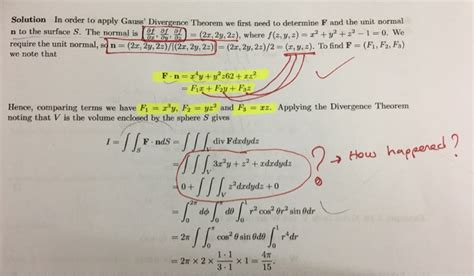 Solution In order to apply Gauss' Divergence Theorem we first need to determine F and the unit normal
n to the surface S. The normal is (∂f/∂x, ∂f/∂y, ∂f/∂z) = (2x, 2y, 2z), where f(x, y, z) = x² + y² + z² − 1 = 0. We
require the unit normal, so n = (2x, 2y, 2z)/|(2x, 2y, 2z)| = (2x, 2y, 2z)/2 = (x, y, z). To find F = (F₁, F₂, F₃)
we note that
F · n = x⁴y + y²z62 + xz²
= F₁x + F₂y + F₃z
Hence, comparing terms we have F₁ = x³y, F₂ = yz² and F₃ = xz. Applying the Divergence Theorem
noting that V is the volume enclosed by the sphere S gives
I = ∫∫_S F · ndS = ∫∫∫_V div Fdxdydz
= ∫∫∫_V 3x²y + z² + xdxdydz
? → How happened?
= 0 + ∫∫∫_V z²dxdydz + 0
= ∫₀^2π dϕ ∫₀^π dθ ∫₀^1 r² cos² θr² sin θdr
= 2π ∫₀^π cos² θ sin θdθ ∫₀^1 r⁴dr
= 2π × 2 × 1·1/3·1 × 1 = 4π/15